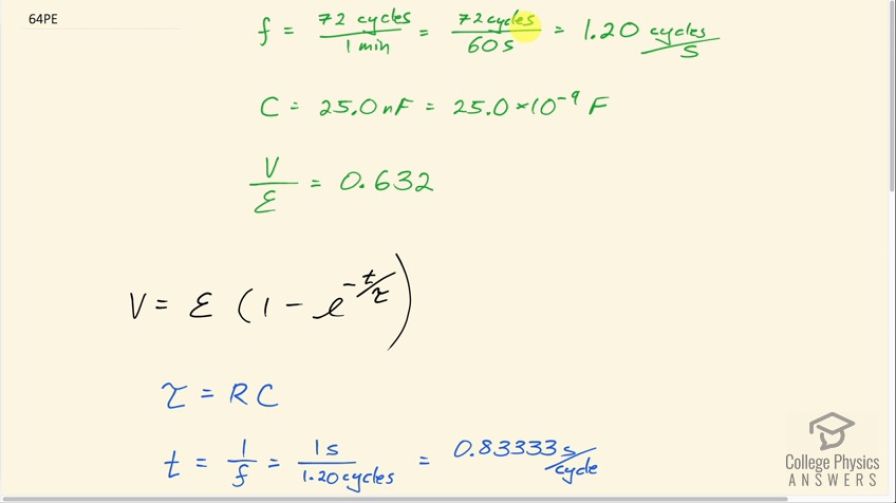 64PE
f = 72 cycles / 1 min = 72 cycles / 60 s = 1.20 cycles/s
C = 25.0 nF = 25.0 × 10⁻⁹ F
V/ε = 0.632
V = ε (1 - e^(-t/τ))
τ = RC
t = 1/f = 1 s / 1.20 cycles = 0.83333 s/cycle
College Physics
ANSWERS